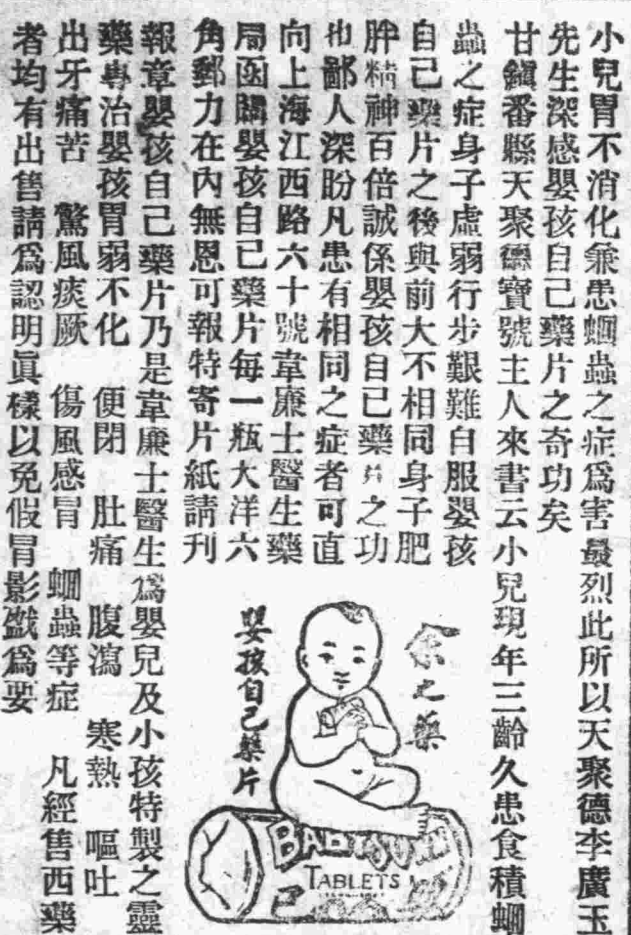 小兒胃不消化兼患蛔蟲之症爲害最烈此所以天聚德李廣玉
先生深感嬰孩自己藥片之奇功矣
甘鎭番縣天聚德寶號主人來書云小兒現年三齡久患食積蛔
蟲之症身子虛弱行步艱難自服嬰孩
自己藥片之後與前大不相同身子肥
胖精神百倍誠係嬰孩自己藥片之功
也鄙人深盼凡患有相同之症者可直
向上海江西路六十號韋廉士醫生藥
局函購嬰孩自己藥片每一瓶大洋六
角郵力在內無恩可報特寄片紙請刊
報章嬰孩自己藥片乃是韋廉士醫生爲嬰兒及小孩特製之靈
藥專治嬰孩胃弱不化 便閉 肚痛 腹瀉 寒熱 嘔吐
出牙痛苦 驚風痰厥 傷風感冒 蛔蟲等症 凡經售西藥
者均有出售請爲認明眞樣以免假冒影戤爲要
余之藥
嬰孩自己藥片
BABY'S OWN
TABLETS